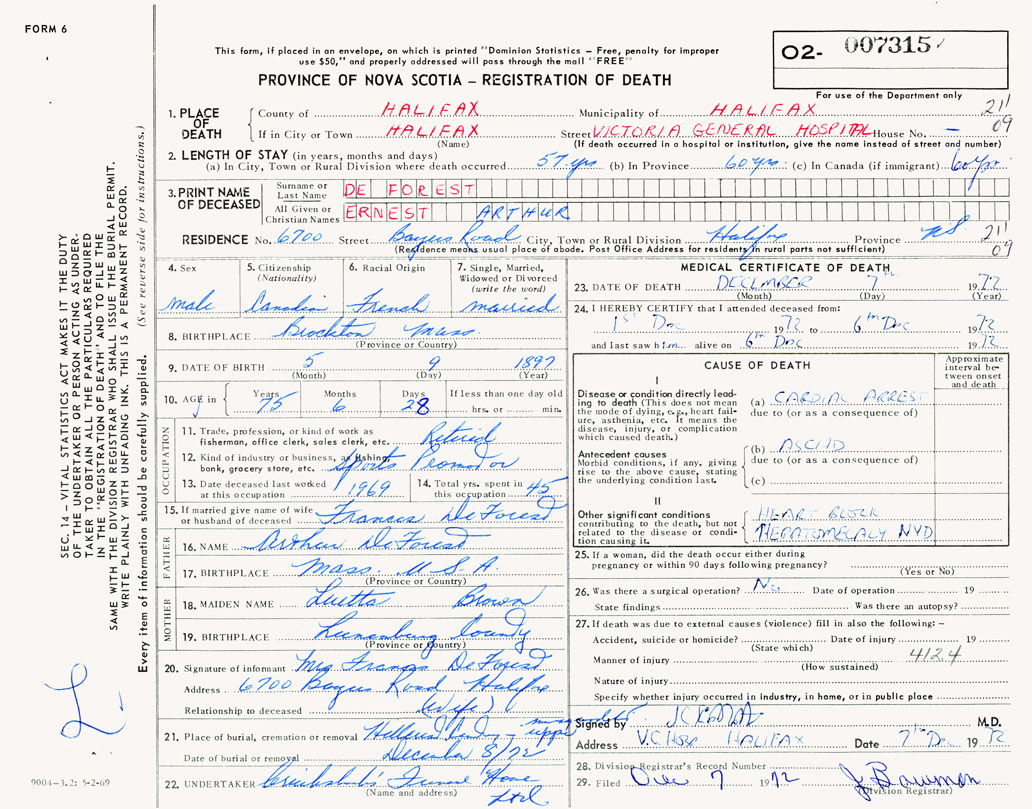 FORM 6
This form, if placed in an envelope, on which is printed "Dominion Statistics – Free, penalty for improper
use $50," and properly addressed will pass through the mail "FREE"
PROVINCE OF NOVA SCOTIA – REGISTRATION OF DEATH
O2- 007315
For use of the Department only
1. PLACE OF DEATH
County of HALIFAX Municipality of HALIFAX 211
If in City or Town HALIFAX Street VICTORIA GENERAL HOSPITAL House No. – 09
(Name) (If death occurred in a hospital or institution, give the name instead of street and number)
2. LENGTH OF STAY (in years, months and days)
(a) In City, Town or Rural Division where death occurred 57 yrs (b) In Province 60 yrs (c) In Canada (if immigrant) 60 yrs
3. PRINT NAME OF DECEASED
Surname or Last Name DE FOREST
All Given or Christian Names ERNEST ARTHUR
RESIDENCE No. 6700 Street Bayers Road City, Town or Rural Division Halifax Province NS 211
(Residence means usual place of abode. Post Office Address for residents in rural parts not sufficient) 09
4. Sex
male
5. Citizenship
(Nationality)
Canadian
6. Racial Origin
French
7. Single, Married,
Widowed or Divorced
(write the word)
married
8. BIRTHPLACE Brockton Mass.
(Province or Country)
9. DATE OF BIRTH 5 9 1897
(Month) (Day) (Year)
10. AGE in Years Months Days If less than one day old
75 6 28 hrs. or min.
OCCUPATION
11. Trade, profession, or kind of work as
fisherman, office clerk, sales clerk, etc. Retired
12. Kind of industry or business, as fishing,
bank, grocery store, etc. Sports Promoter
13. Date deceased last worked
at this occupation 1969
14. Total yrs. spent in
this occupation 45
15. If married give name of wife
or husband of deceased Frances DeForest
FATHER
16. NAME Arthur DeForest
17. BIRTHPLACE Mass. U.S.A.
(Province or Country)
MOTHER
18. MAIDEN NAME Luetta Brown
19. BIRTHPLACE Lunenburg County
(Province or Country)
20. Signature of informant Mrs Frances DeForest
Address 6700 Bayers Road Halifax
Relationship to deceased (wife)
21. Place of burial, cremation or removal
Date of burial or removal December 8/72
22. UNDERTAKER Cruikshank's Funeral Home
(Name and address) Ltd
MEDICAL CERTIFICATE OF DEATH
23. DATE OF DEATH DECEMBER 7th 1972
(Month) (Day) (Year)
24. I HEREBY CERTIFY that I attended deceased from:
1st Dec 1972 to 6th Dec 1972
and last saw him alive on 6th Dec 1972
CAUSE OF DEATH
Approximate
interval be-
tween onset
and death
I
Disease or condition directly lead-
ing to death (This does not mean
the mode of dying, e.g., heart fail-
ure, asthenia, etc. It means the
disease, injury, or complication
which caused death.)
(a) CARDIAC ARREST
due to (or as a consequence of)
Antecedent causes
Morbid conditions, if any, giving
rise to the above cause, stating
the underlying condition last.
(b) ASCHD
due to (or as a consequence of)
(c)
II
Other significant conditions
contributing to the death, but not
related to the disease or condi-
tion causing it.
HEART BLOCK
HEPATOMEGALY NYD
25. If a woman, did the death occur either during
pregnancy or within 90 days following pregnancy?
(Yes or No)
26. Was there a surgical operation? No Date of operation 19
State findings Was there an autopsy?
27. If death was due to external causes (violence) fill in also the following: –
Accident, suicide or homicide? Date of injury 19
(State which)
Manner of injury 412.4
(How sustained)
Nature of injury
Specify whether injury occurred in industry, in home, or in public place
Signed by M.D.
Address V.G. Hosp HALIFAX Date 7th Dec 1972
28. Division Registrar's Record Number
29. Filed Dec 7 1972 J. Bauman
(Division Registrar)
SEC. 14 – VITAL STATISTICS ACT MAKES IT THE DUTY
OF THE UNDERTAKER OR PERSON ACTING AS UNDER-
TAKER TO OBTAIN ALL THE PARTICULARS REQUIRED
IN THE "REGISTRATION OF DEATH" AND TO FILE THE
SAME WITH THE DIVISION REGISTRAR WHO SHALL ISSUE THE BURIAL PERMIT.
WRITE PLAINLY WITH UNFADING INK. THIS IS A PERMANENT RECORD.
Every item of information should be carefully supplied. (See reverse side for instructions.)
9004-3.2: 5-2-69